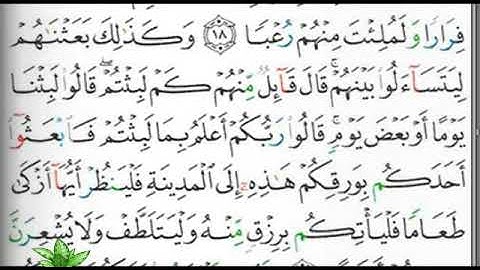 فِرَارًا وَلَمُلِئْتَ مِنْهُمْ رُعْبًا ١٨ وَكَذَٰلِكَ بَعَثْنَٰهُمْ
لِيَتَسَآءَلُوا۟ بَيْنَهُمْ ۚ قَالَ قَآئِلٌ مِّنْهُمْ كَمْ لَبِثْتُمْ ۖ قَالُوا۟ لَبِثْنَا
يَوْمًا أَوْ بَعْضَ يَوْمٍ ۚ قَالُوا۟ رَبُّكُمْ أَعْلَمُ بِمَا لَبِثْتُمْ فَٱبْعَثُوٓا۟
أَحَدَكُم بِوَرِقِكُمْ هَٰذِهِۦٓ إِلَى ٱلْمَدِينَةِ فَلْيَنظُرْ أَيُّهَآ أَزْكَىٰ
طَعَامًا فَلْيَأْتِكُم بِرِزْقٍ مِّنْهُ وَلْيَتَلَطَّفْ وَلَا يُشْعِرَنَّ